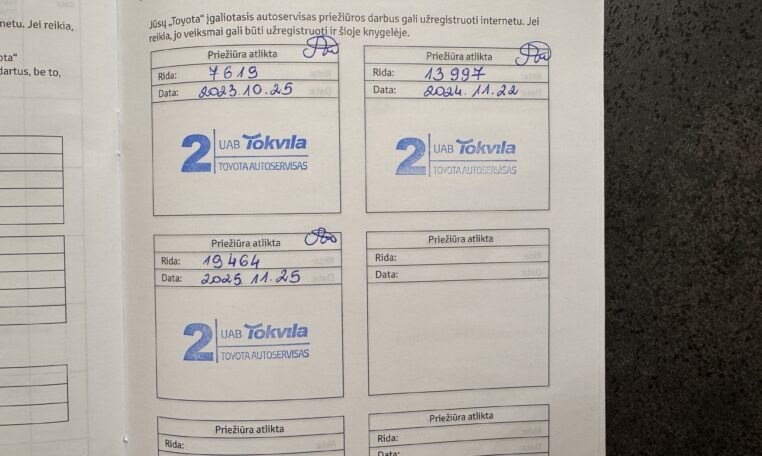 netu. Jei reikia,
ota“
dartus, be to,
Jūsų „Toyota“ įgaliotasis autoservisas priežiūros darbus gali užregistruoti internetu. Jei
reikia, jo veiksmai gali būti užregistruoti ir šioje knygelėje.
Priežiūra atlikta
Rida: 7619
Data: 2023.10.25
2 UAB Tokvila
TOYOTA AUTOSERVISAS
Priežiūra atlikta
Rida: 13997
Data: 2024.11.22
2 UAB Tokvila
TOYOTA AUTOSERVISAS
Priežiūra atlikta
Rida: 19464
Data: 2025 11.25
2 UAB Tokvila
TOYOTA AUTOSERVISAS
Priežiūra atlikta
Rida:
Data:
Priežiūra atlikta
Rida:
Priežiūra atlikta
Rida:
Data: